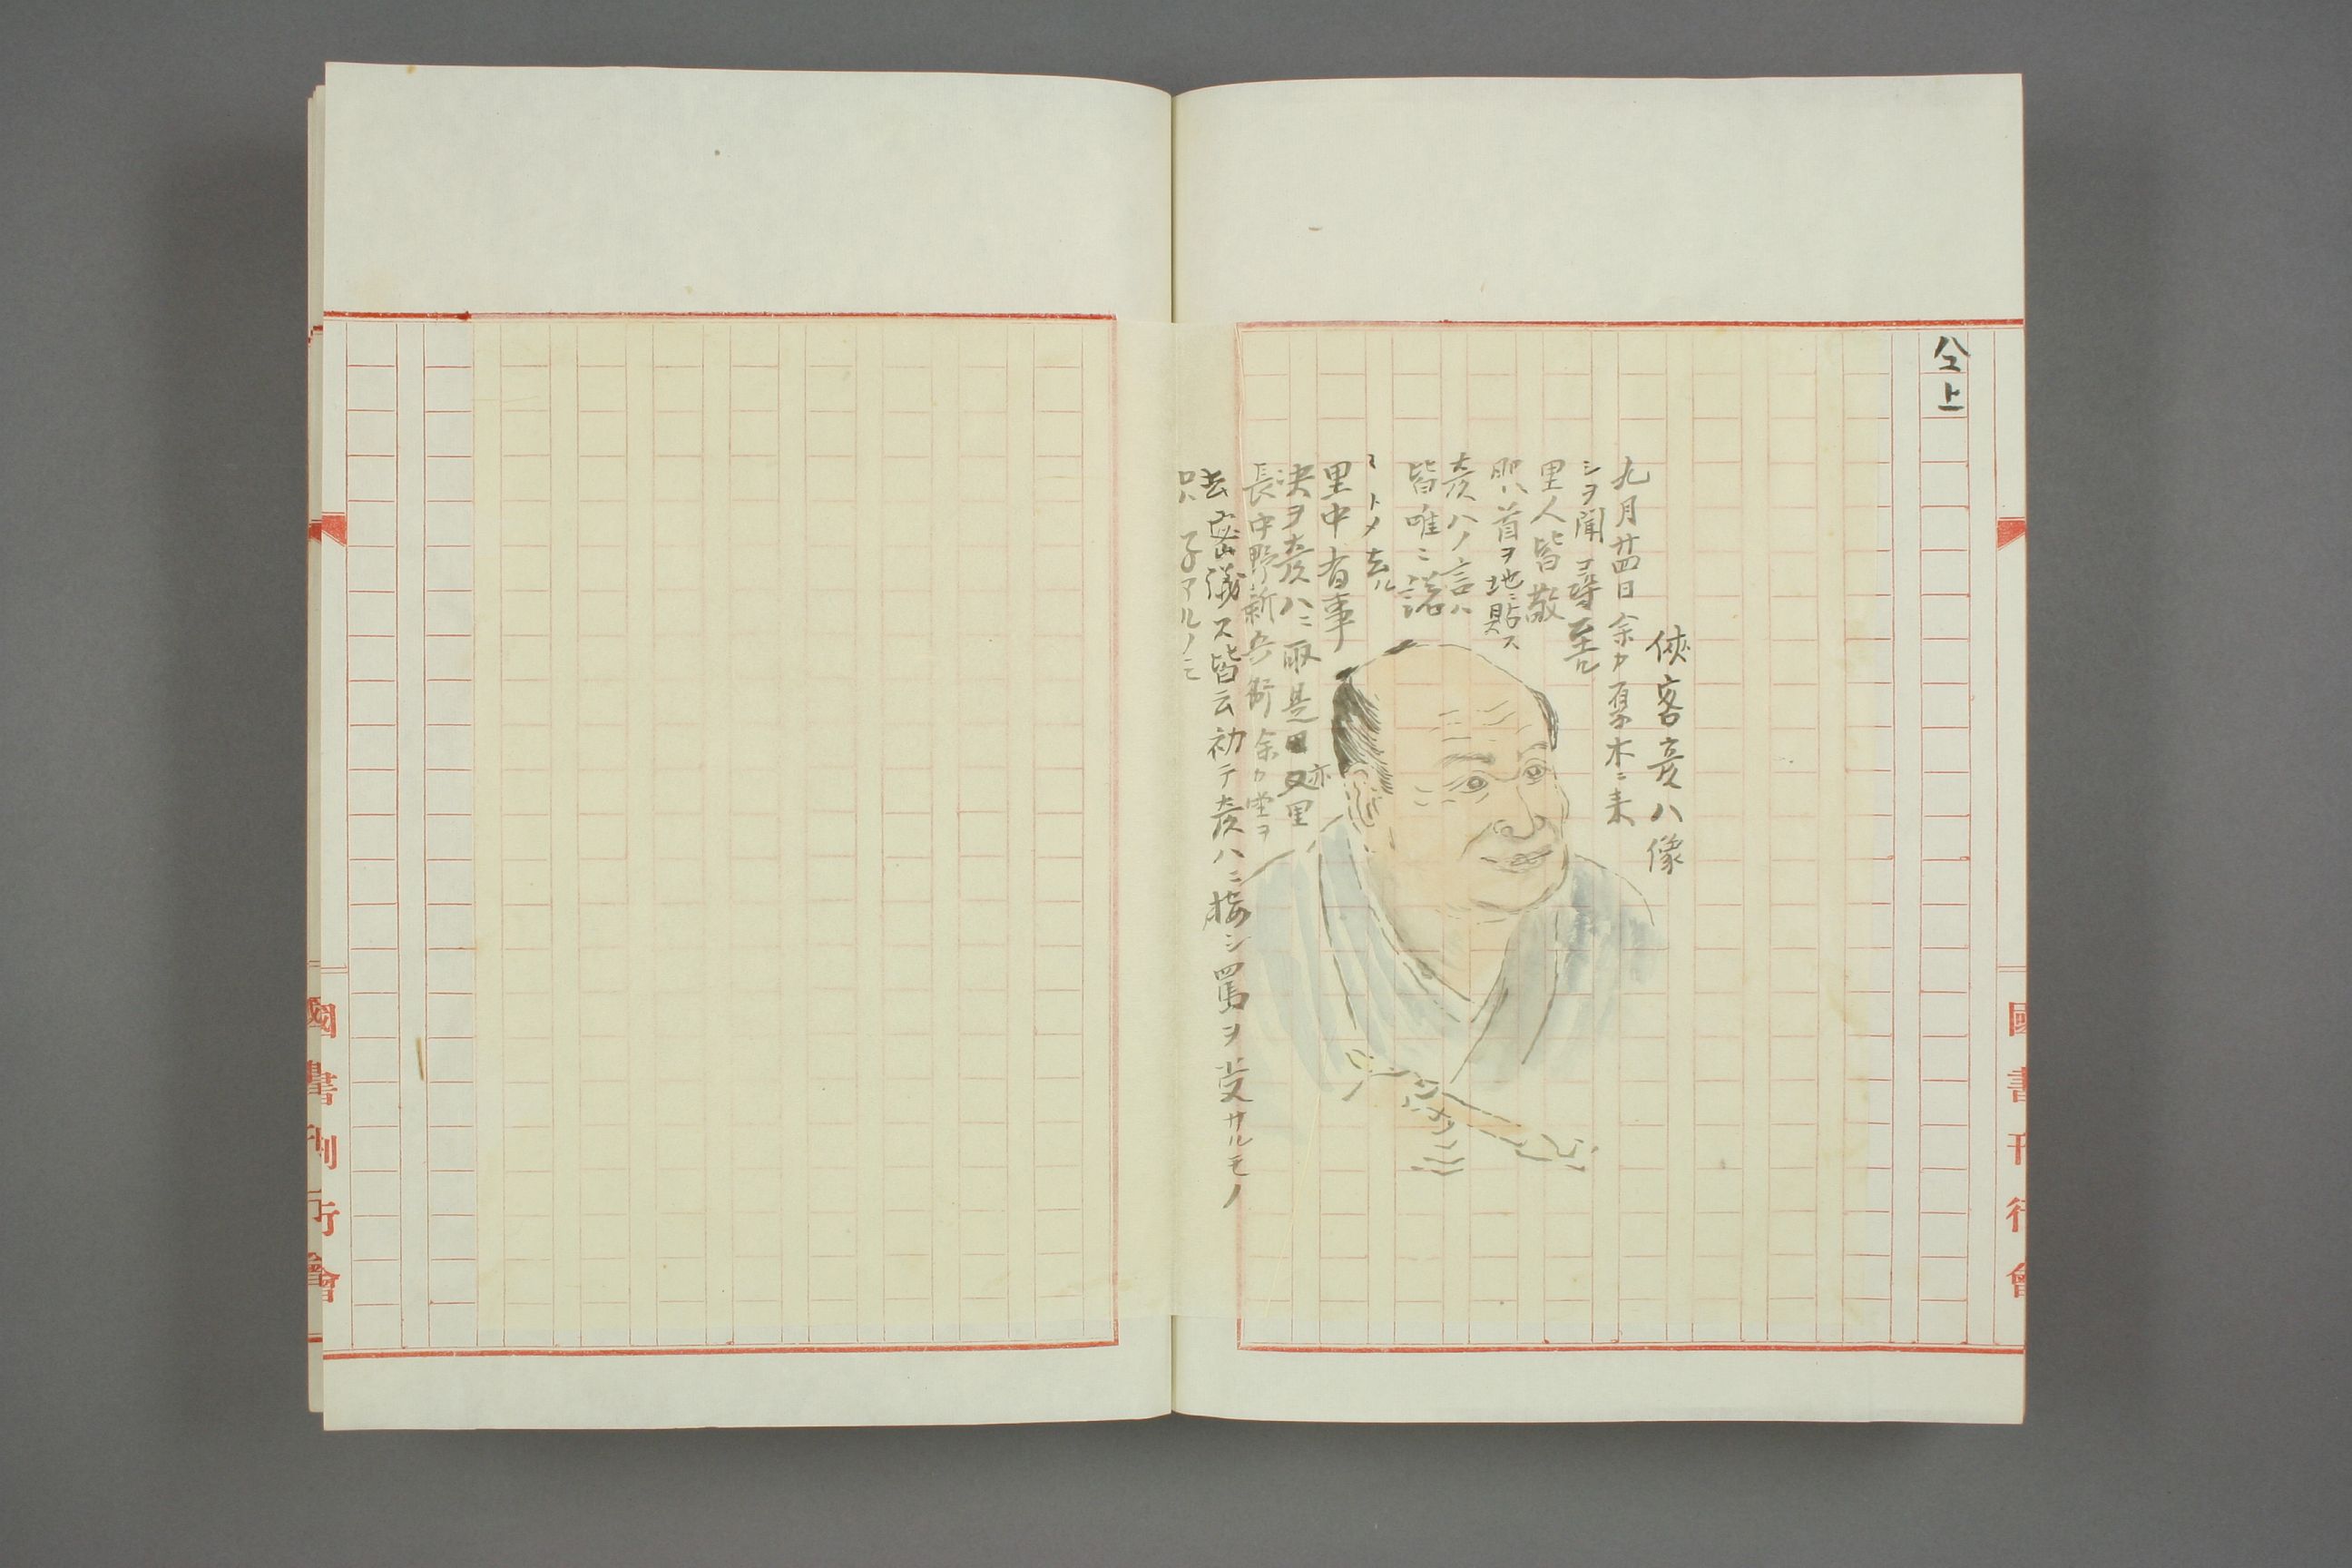 仝上
侠客彦八像
九月廿四日余カ厚木ニ来
シヲ聞尋至ル
里人皆敬
首ヲ地ニ貼ス
彦八ノ言ハ
皆唯ニ諾
ミトメ去ル
里中有事
决ヲ彦八ニ取是日亦里
長中野新兵衛余カ堂ヲ
去密議ス皆云初テ彦八ニ接シ罵ヲ受サルモノ
只子アルノミ
國書刊行會
國書刊行會